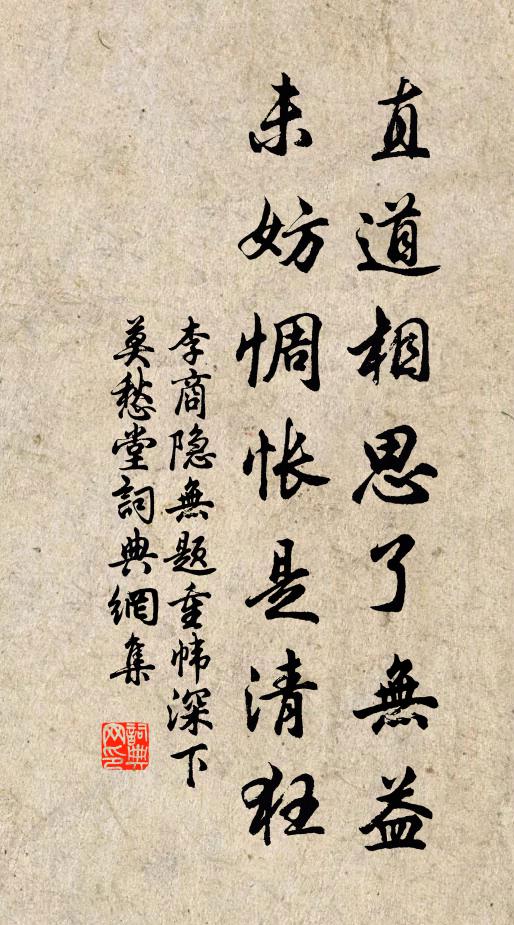 直道相思了無益
未妨惆怅是清狂
李商隐無题重帏深下
莫愁堂詞典網集
詞典
网印